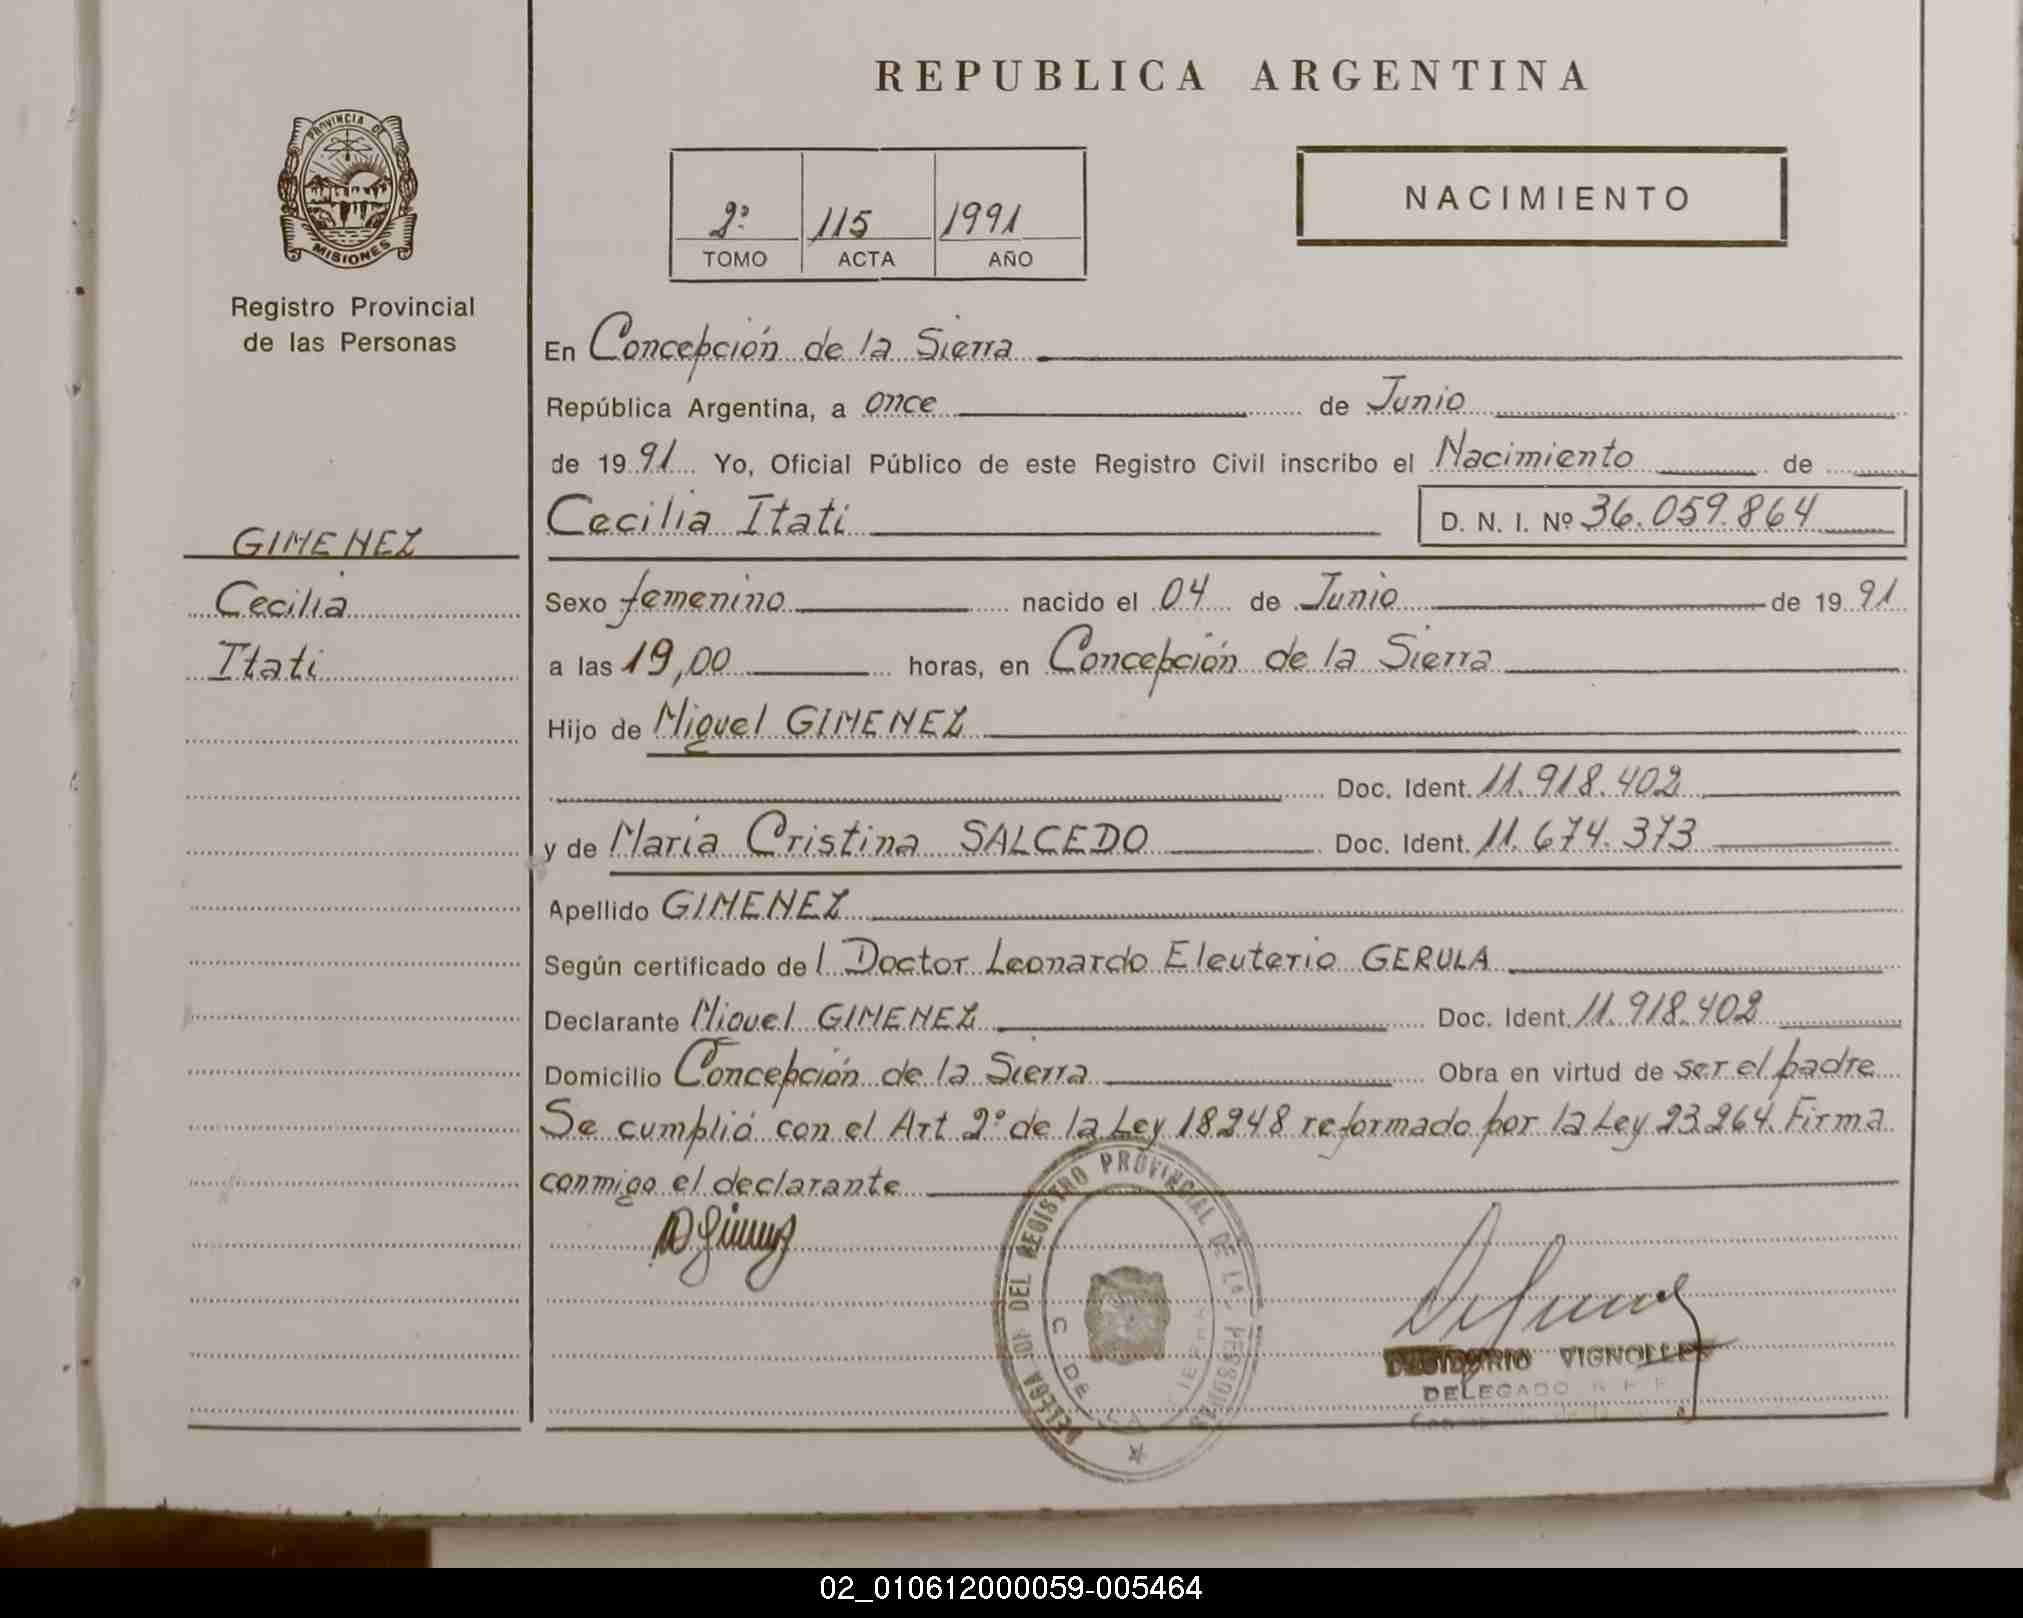 REPUBLICA ARGENTINA
PROVINCIA DE
MISIONES
Registro Provincial
de las Personas
2º 115 1991
TOMO ACTA AÑO
NACIMIENTO
En Concepción de la Sierra
República Argentina, a once de Junio
de 1991 Yo, Oficial Público de este Registro Civil inscribo el Nacimiento de
Cecilia Itati D. N. I. Nº 36.059.864
GIMENEZ
Cecilia
Itati
Sexo femenino nacido el 04 de Junio de 1991
a las 19,00 horas, en Concepción de la Sierra
Hijo de Miguel GIMENEZ
Doc. Ident. 11.918.402
y de Maria Cristina SALCEDO Doc. Ident. 11.674.373
Apellido GIMENEZ
Según certificado de l Doctor Leonardo Eleuterio GERULA
Declarante Miguel GIMENEZ Doc. Ident. 11.918.402
Domicilio Concepción de la Sierra Obra en virtud de ser el padre
Se cumplió con el Art 2º de la Ley 18248 reformado por la Ley 23.264. Firma
conmigo el declarante
REGISTRO PROVINCIAL DE LAS PERSONAS
VIGNOLLES
DELEGADO
02_010612000059-005464